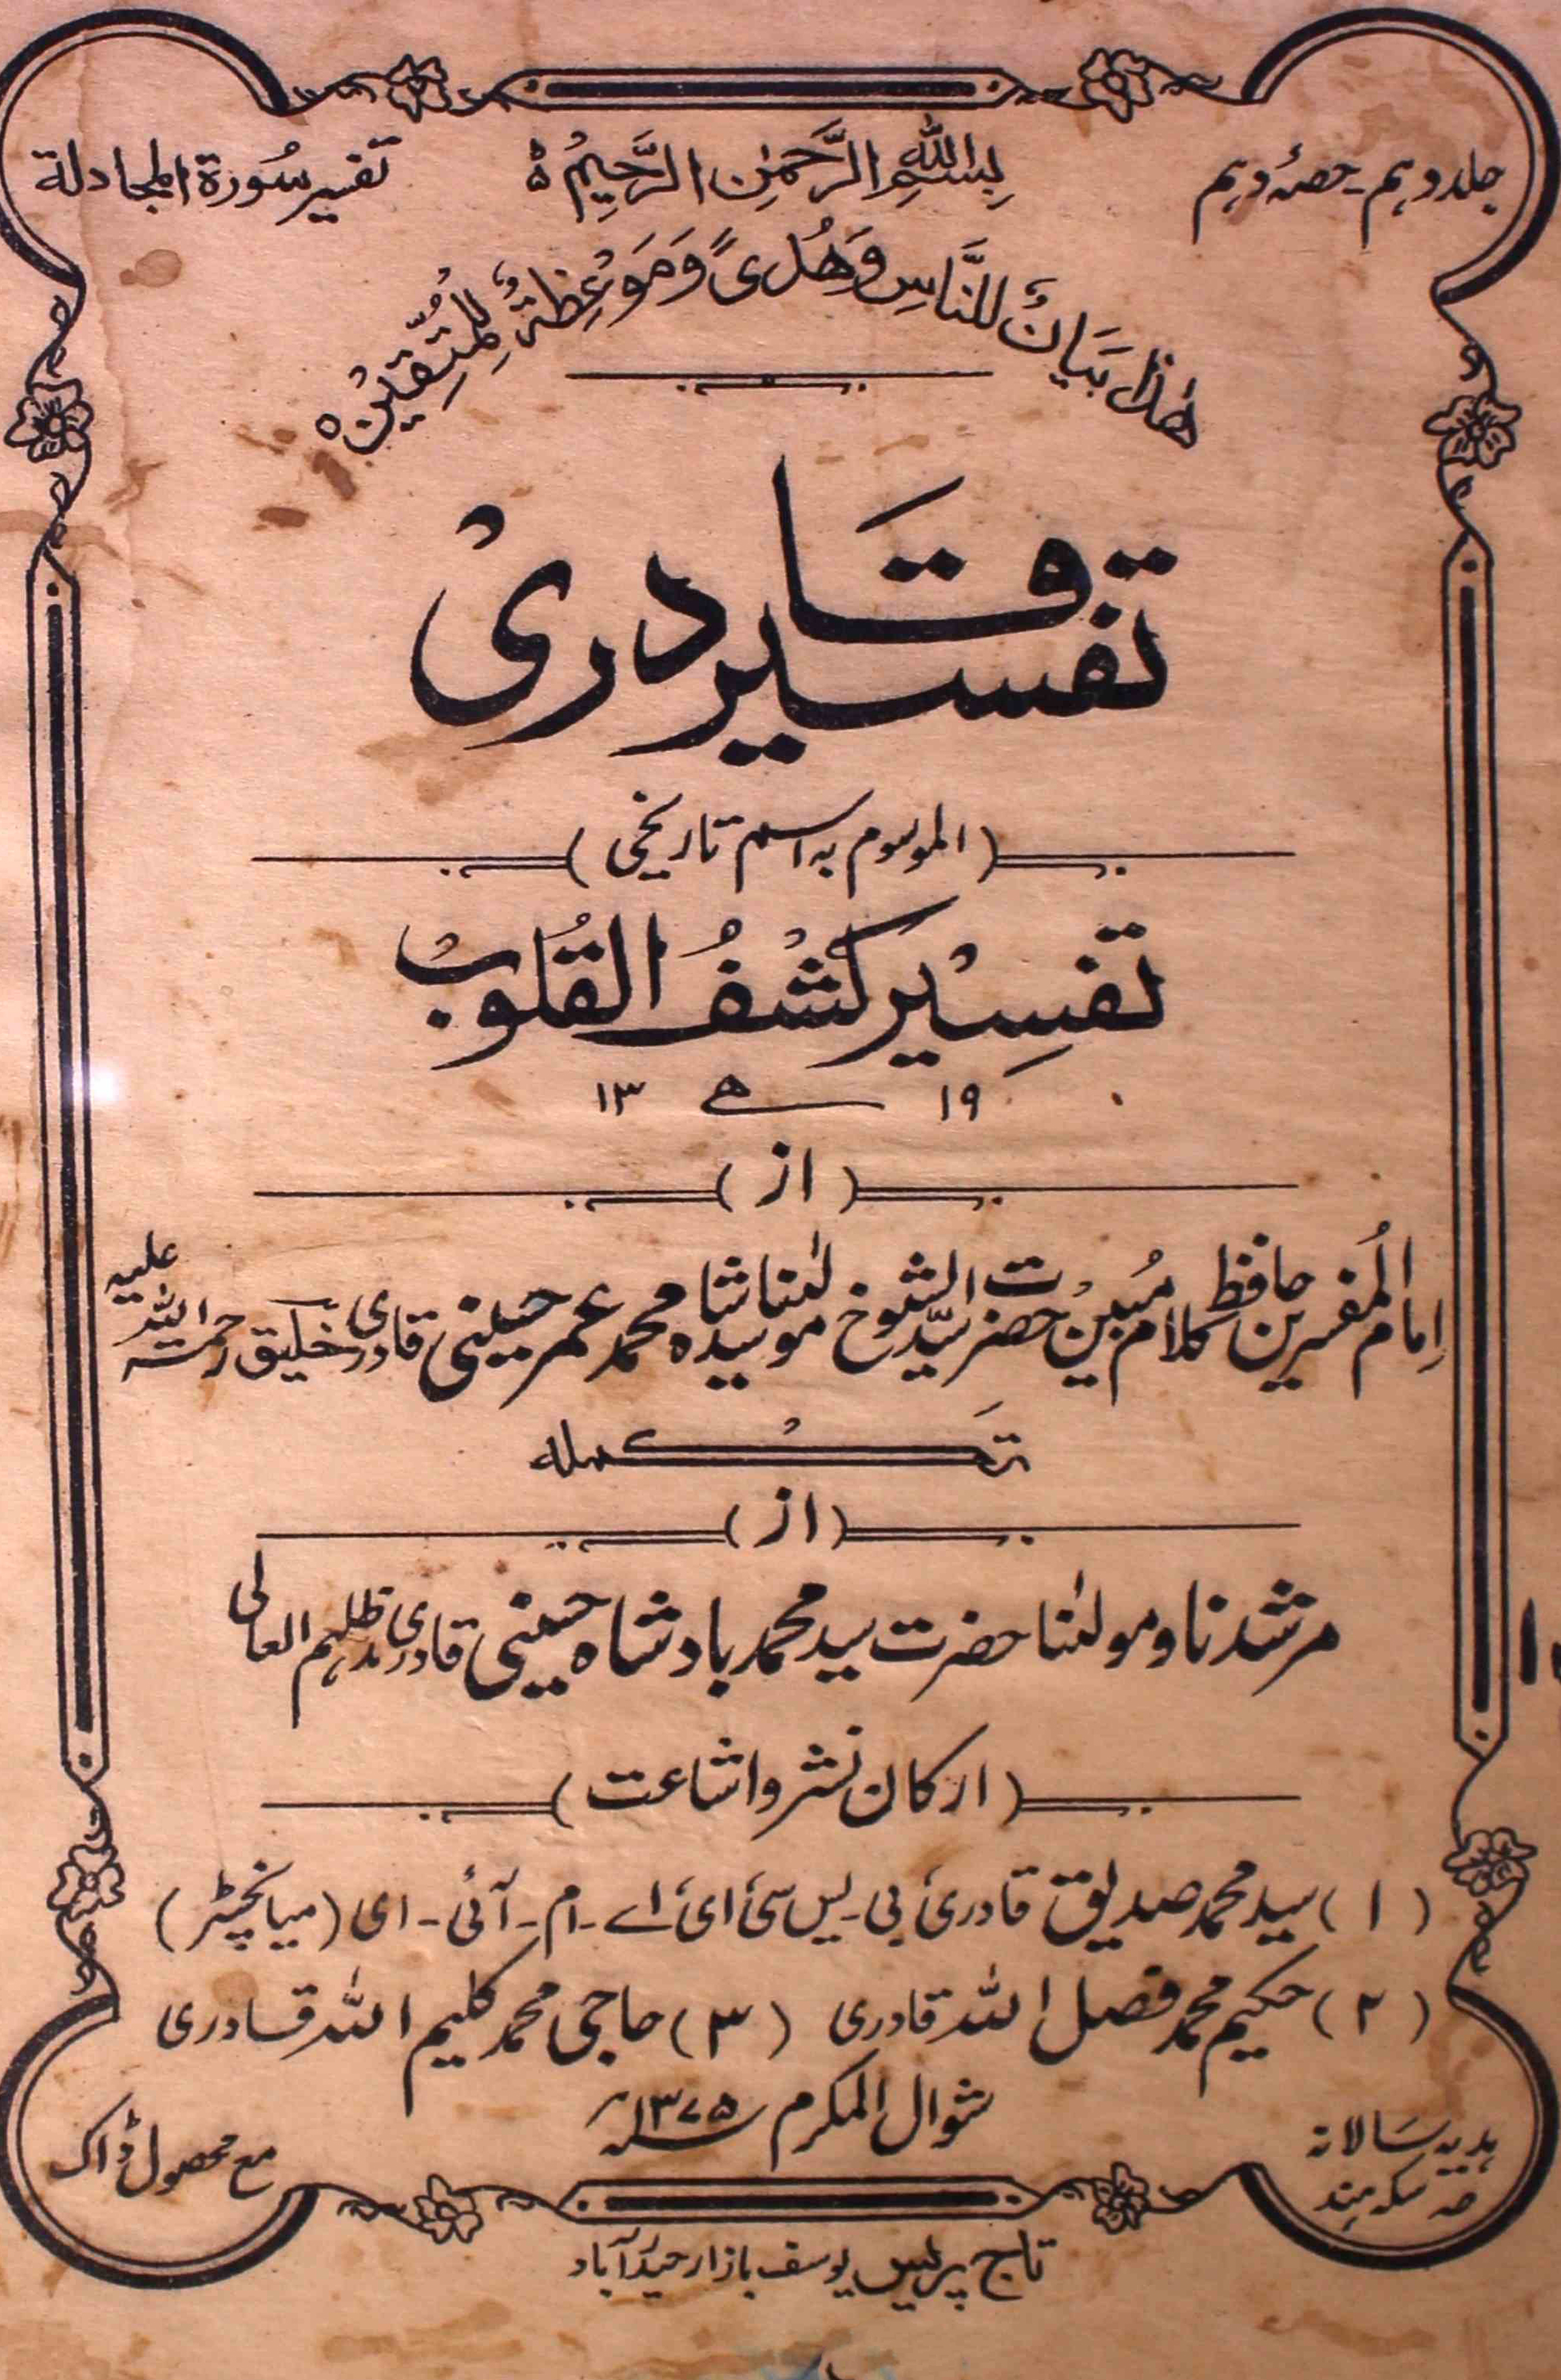 جلد دہم۔ حصۂ دہم
بِسْمِ اللّٰہِ الرَّحْمٰنِ الرَّحِیْمِ ہ
تفسیر سُورۃ المجادلۃ
ھٰذَا بَیَانٌ لِّلنَّاسِ وَھُدًی وَّمَوْعِظَۃٌ لِّلْمُتَّقِیْنَ ہ
تفسیر قَادری
(الموسوم بہ اسم تاریخی)
تفسِیْر کشْفُ القُلُوبْ
۱۹ ھ ۱۳
(از)
اِمام المُفسرین حافظ کلام مُبین حضرت سیّد الشیوخ مولٰنا سیدشاہ محمد عمر حسینی قادری خلیق رحمۃ اللہ علیہ
تَکْملہ
(از)
مرشدنا و مولٰنا حضرت سید محمد بادشاہ حسینی قادری مدظلہم العالی
(ارکان نشر و اشاعت)
(۱) سید محمد صدیق قادری بی۔یس سی ای اے۔ام۔آئی۔ای (میانچٹر)
(۲) حکیم محمد فضل اللہ قادری (۳) حاجی محمد کلیم اللہ قادری
شوال المکرم ۱۳۷۵ھ
ہدیہ سَالانہ
سکہ ہند
مع محصول ڈاک
تاج پریس یوسف بازار حیدرآباد